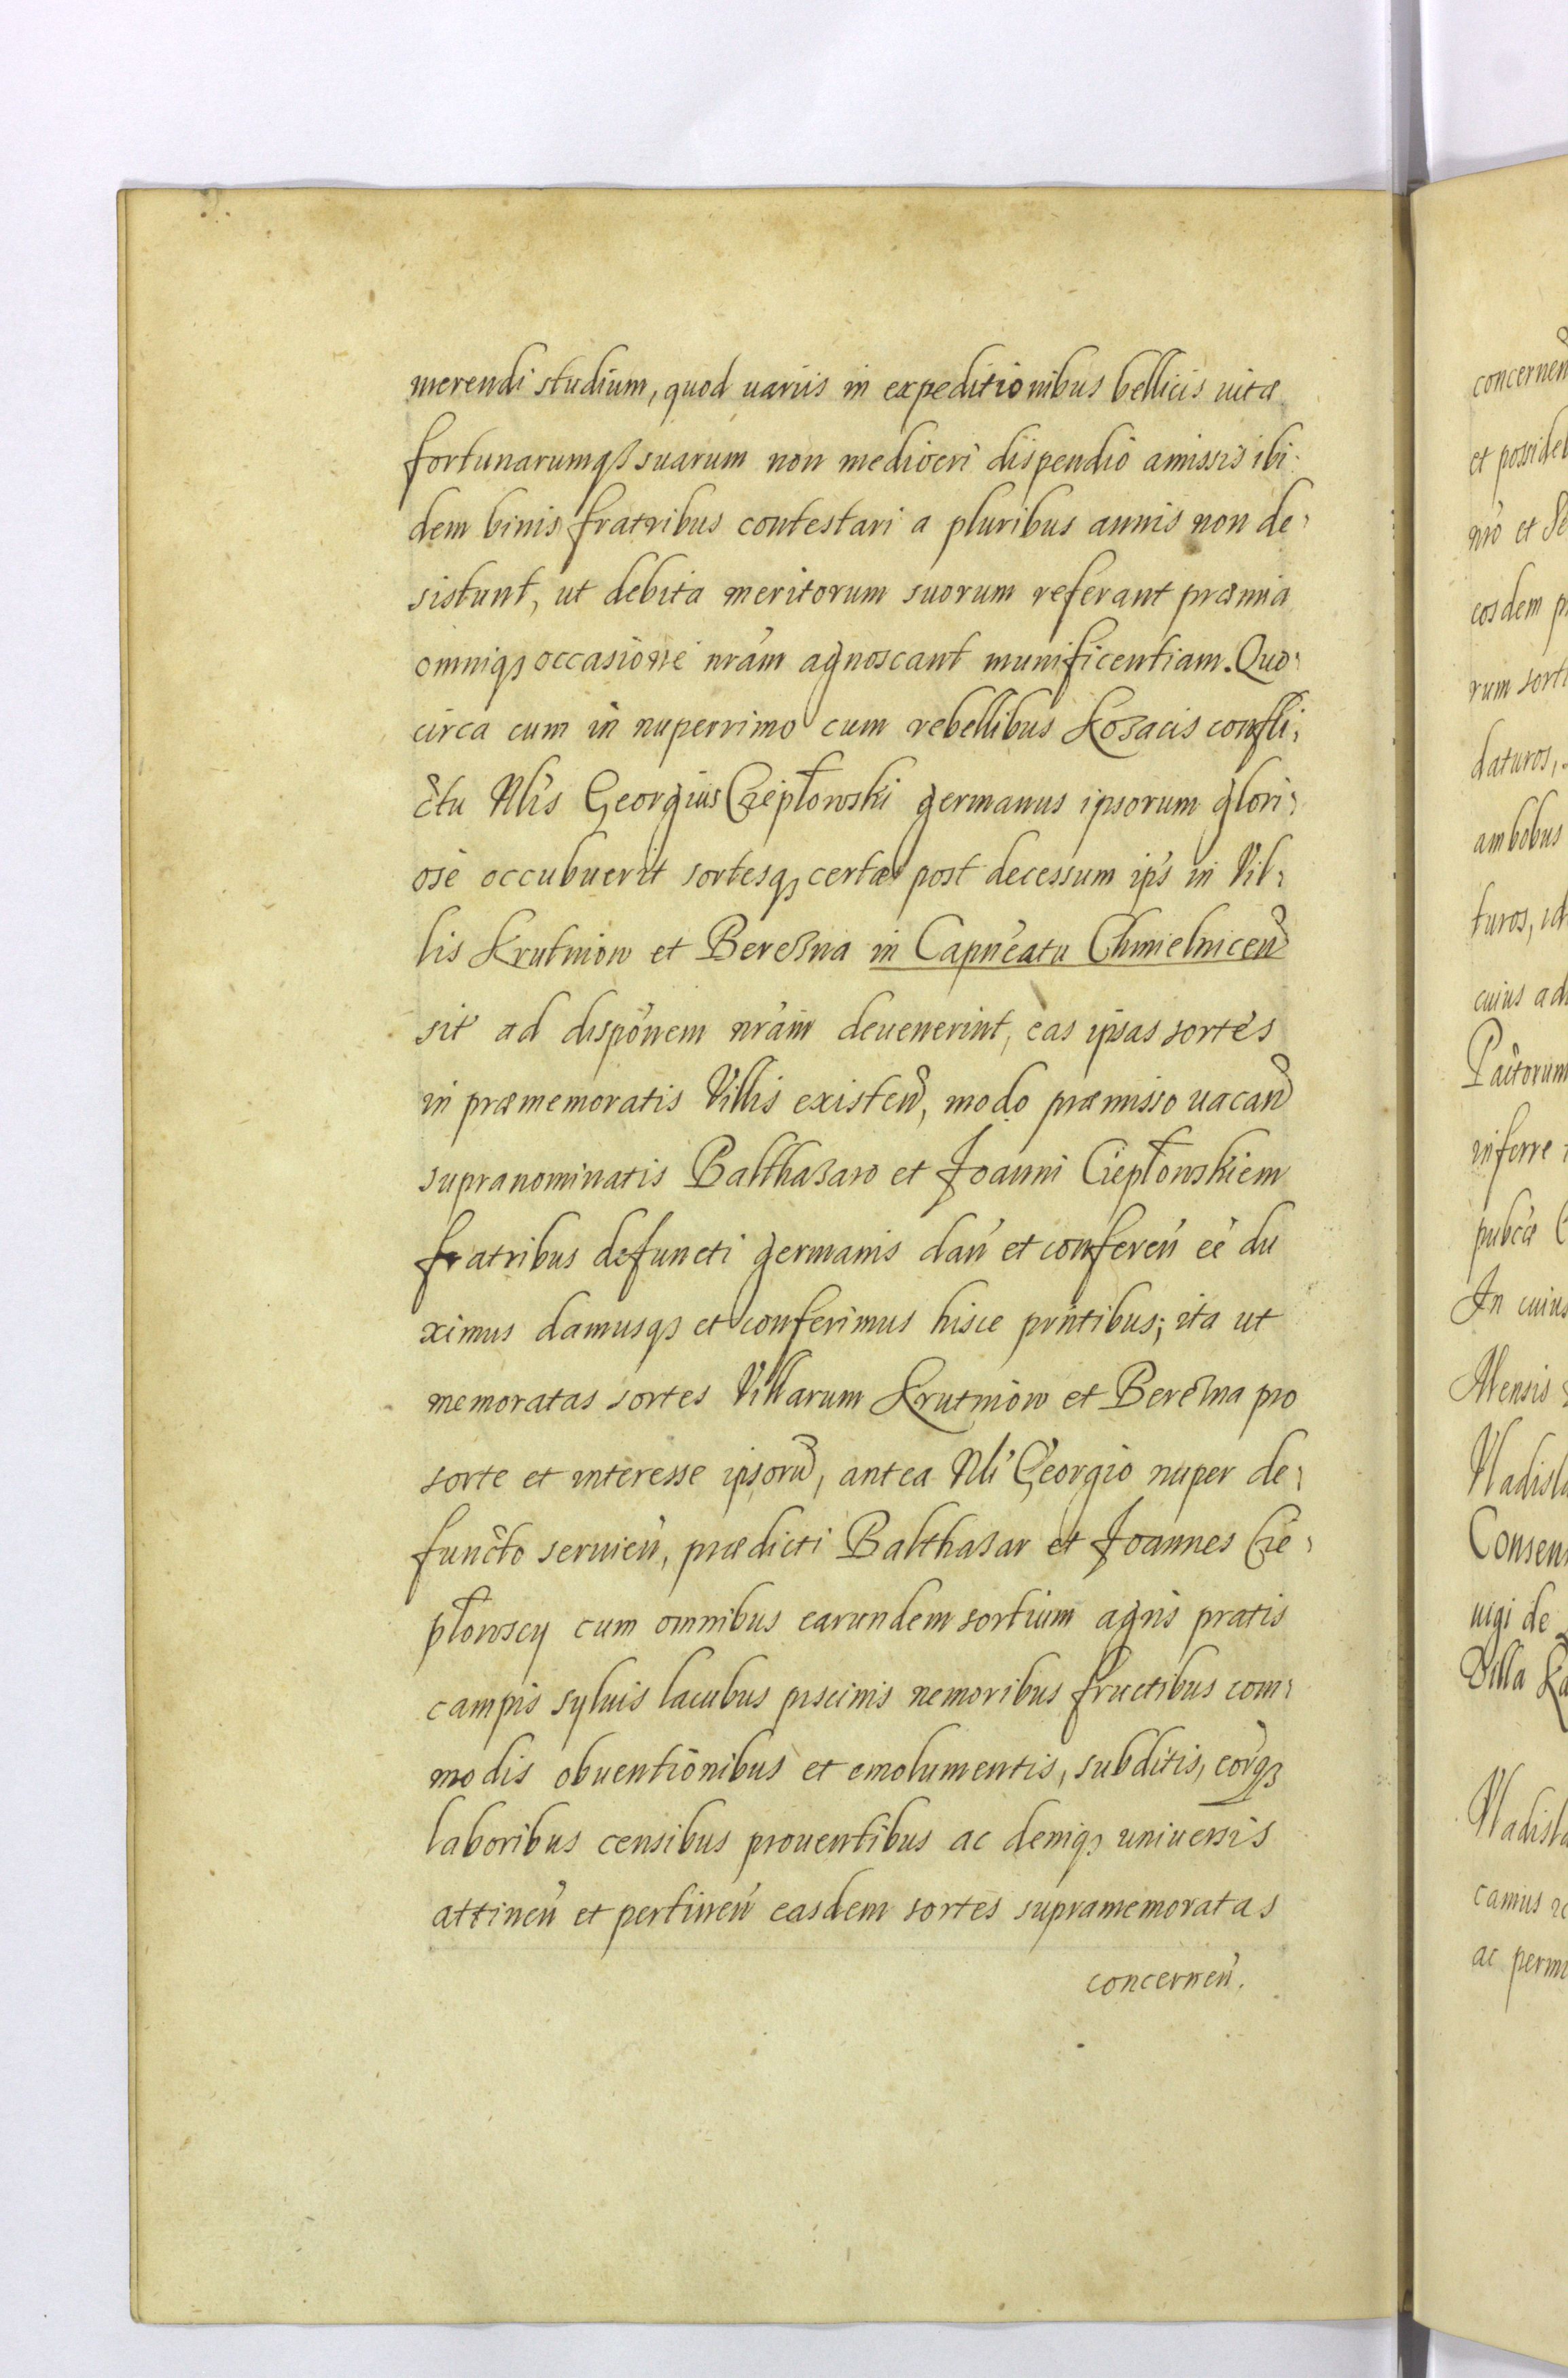 merendi studium, quod uariis in expeditionibus bellicis uitæ
fortunarumqꝫ suarum non mediocri dispendio amissis ibi:
dem binis fratribus contestari a pluribus annis non de,
sistunt, ut debita meritorum suorum referant præmia
omniqꝫ occasione nrãm agnoscant munificentiam. Quo,
circa cum in nuperrimo cum rebellibus Kozacis confli,
ctu Nlis Georgius Ciepłowski germanus ipsorum glori,
ose occubuerit sortesqꝫ certæ post decessum ips in Vil,
lis Krutniow et Berezna in Capneatu Chmielnicen
sit ad disponem nrãm deuenerint, eas ipsas sortes
in præmemoratis Villis existen, modo præmisso uacan
supranominatis Balthazaro et Joanni Ciepłowskiem
fratribus defuncti germanis dan et conferen ee du
ximus damusqꝫ et conferimus hisce pntibus; ita ut
memoratas sortes Villarum Krutniow et Berezna pro
sorte et interesse ipsoru, antea Nli Georgio nuper de,
functo seruien, prædicti Balthazar et Joannes Cie,
płowscy cum omnibus earundem sortium agris pratis
campis syluis lacubus piscinis nemoribus fructibus com,
modis obuentionibus et emolumentis, subditis, eorqꝫ
laboribus censibus prouentibus ac deniqꝫ uniuersis
attinen et pertinen easdem sortes supramemoratas
concernen.
concernen
et possideb
nro et Se
eosdem p
rum sorti
daturos,
ambobus
turos, id
cuius ad
Pactorum
inferre
pubcæ C
In cuius
Mensis
Vladisla
Consen
uigi de
Villa Ka
Vladisla
camus
ac perm